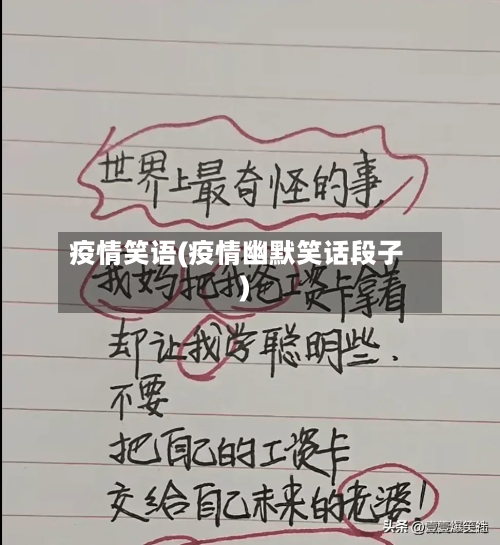 世界上最奇怪的事
疫情笑语(疫情幽默笑话段子
)
我妈把我爸工资卡拿着
却让我学聪明些.
不要
把自己的工资卡
交给自己未来的老婆!
头条 @壹壹爆笑社